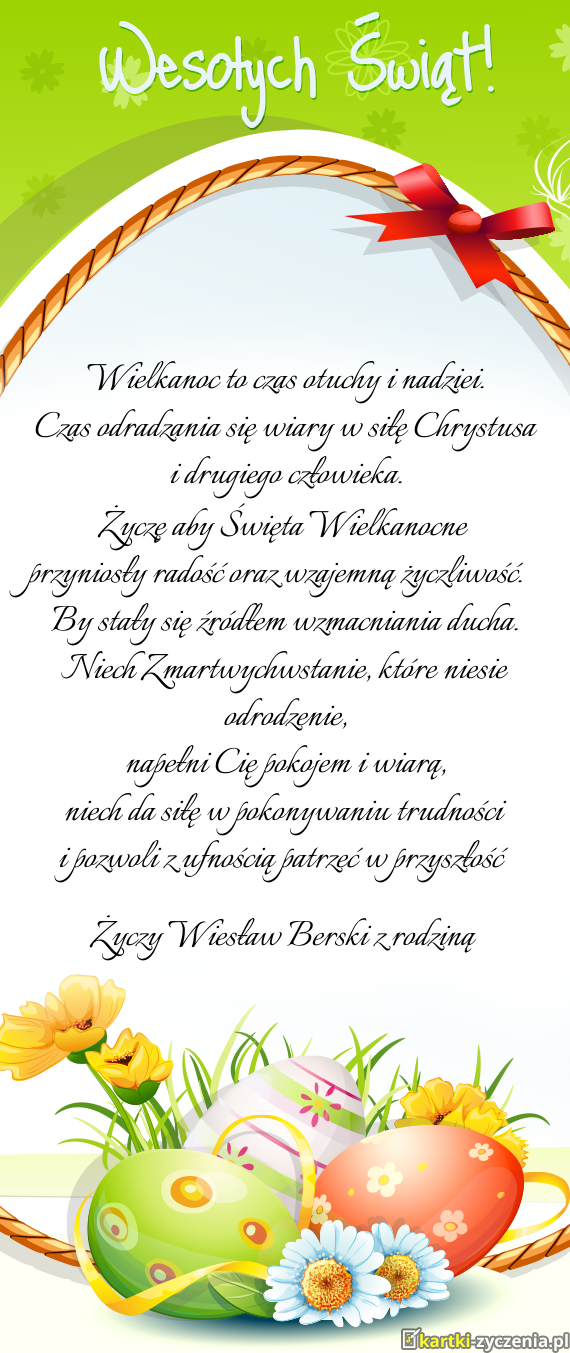 Wesołych Świąt!
Wielkanoc to czas otuchy i nadziei.
Czas odradzania się wiary w siłę Chrystusa
i drugiego człowieka.
Życzę aby Święta Wielkanocne
przyniosły radość oraz wzajemną życzliwość.
By stały się źródłem wzmacniania ducha.
Niech Zmartwychwstanie, które niesie
odrodzenie,
napełni Cię pokojem i wiarą,
niech da siłę w pokonywaniu trudności
i pozwoli z ufnością patrzeć w przyszłość
Życzy Wiesław Berski z rodziną
kartki-zyczenia.pl